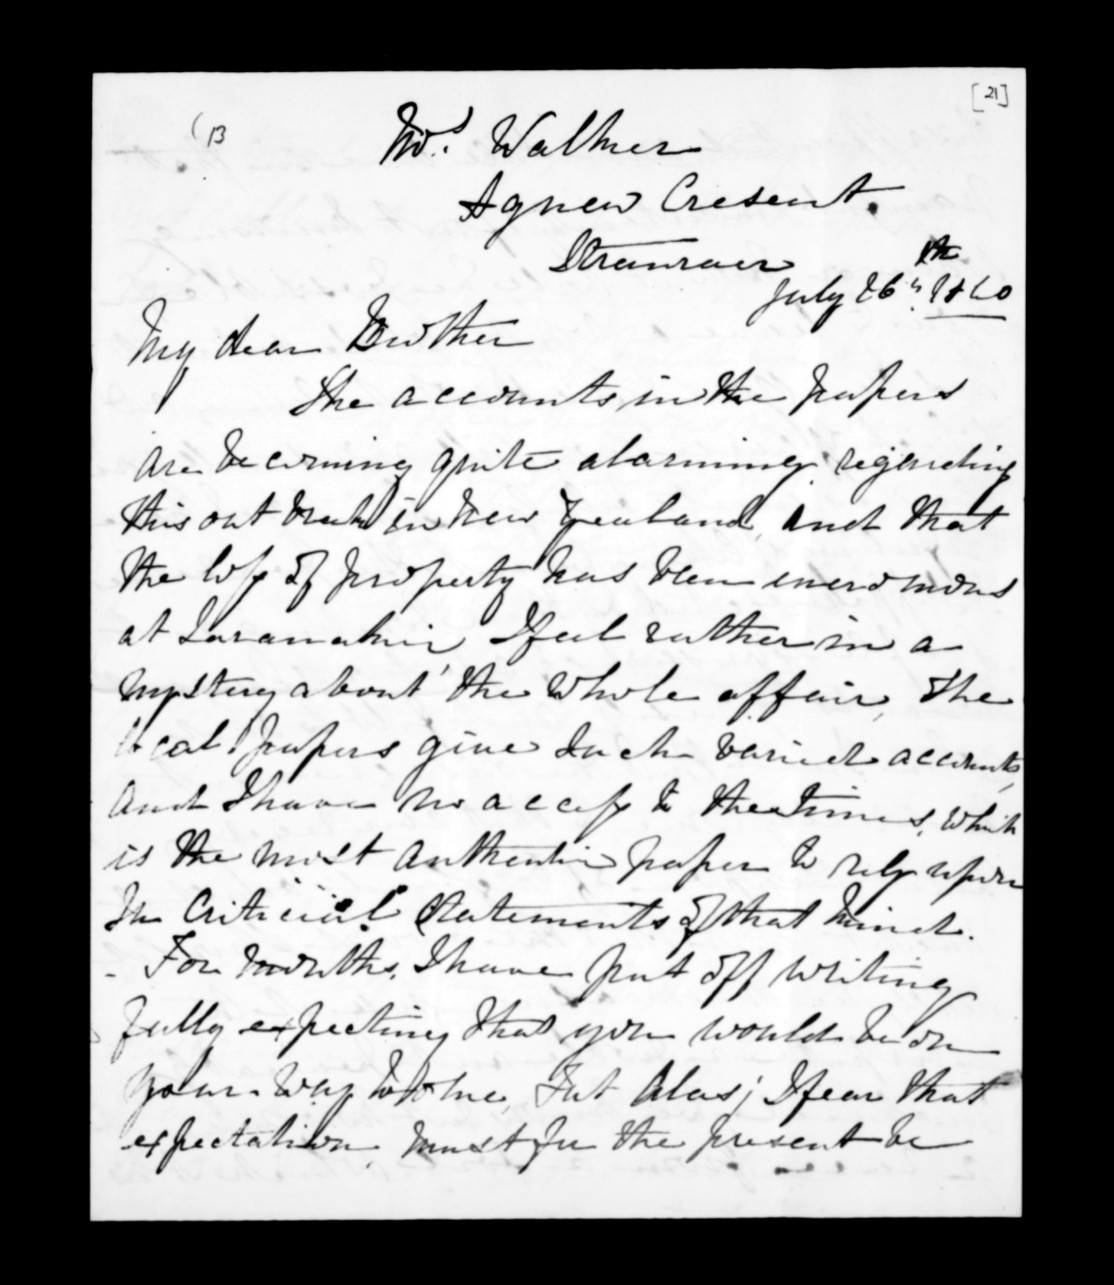 [21]
(13
Mrs. Walker
Agnew Cresent.
Stranraer
July 26th 1860
My dear Brother
The accounts in the papers
are becoming quite alarming regarding
this out break in New Zealand, and that
the loss of property has been eneromous
at Taranakie I feel rather in a
mystery about the whole affair, The
local papers give such varied accounts,
and I have no access to the Times, which
is the most authentic paper to rely upon
In critical statements of that kind.
- For months, I have put off writing
fully expecting that you would be on
your way home, But Alas; I fear that
expectation, must for the present be